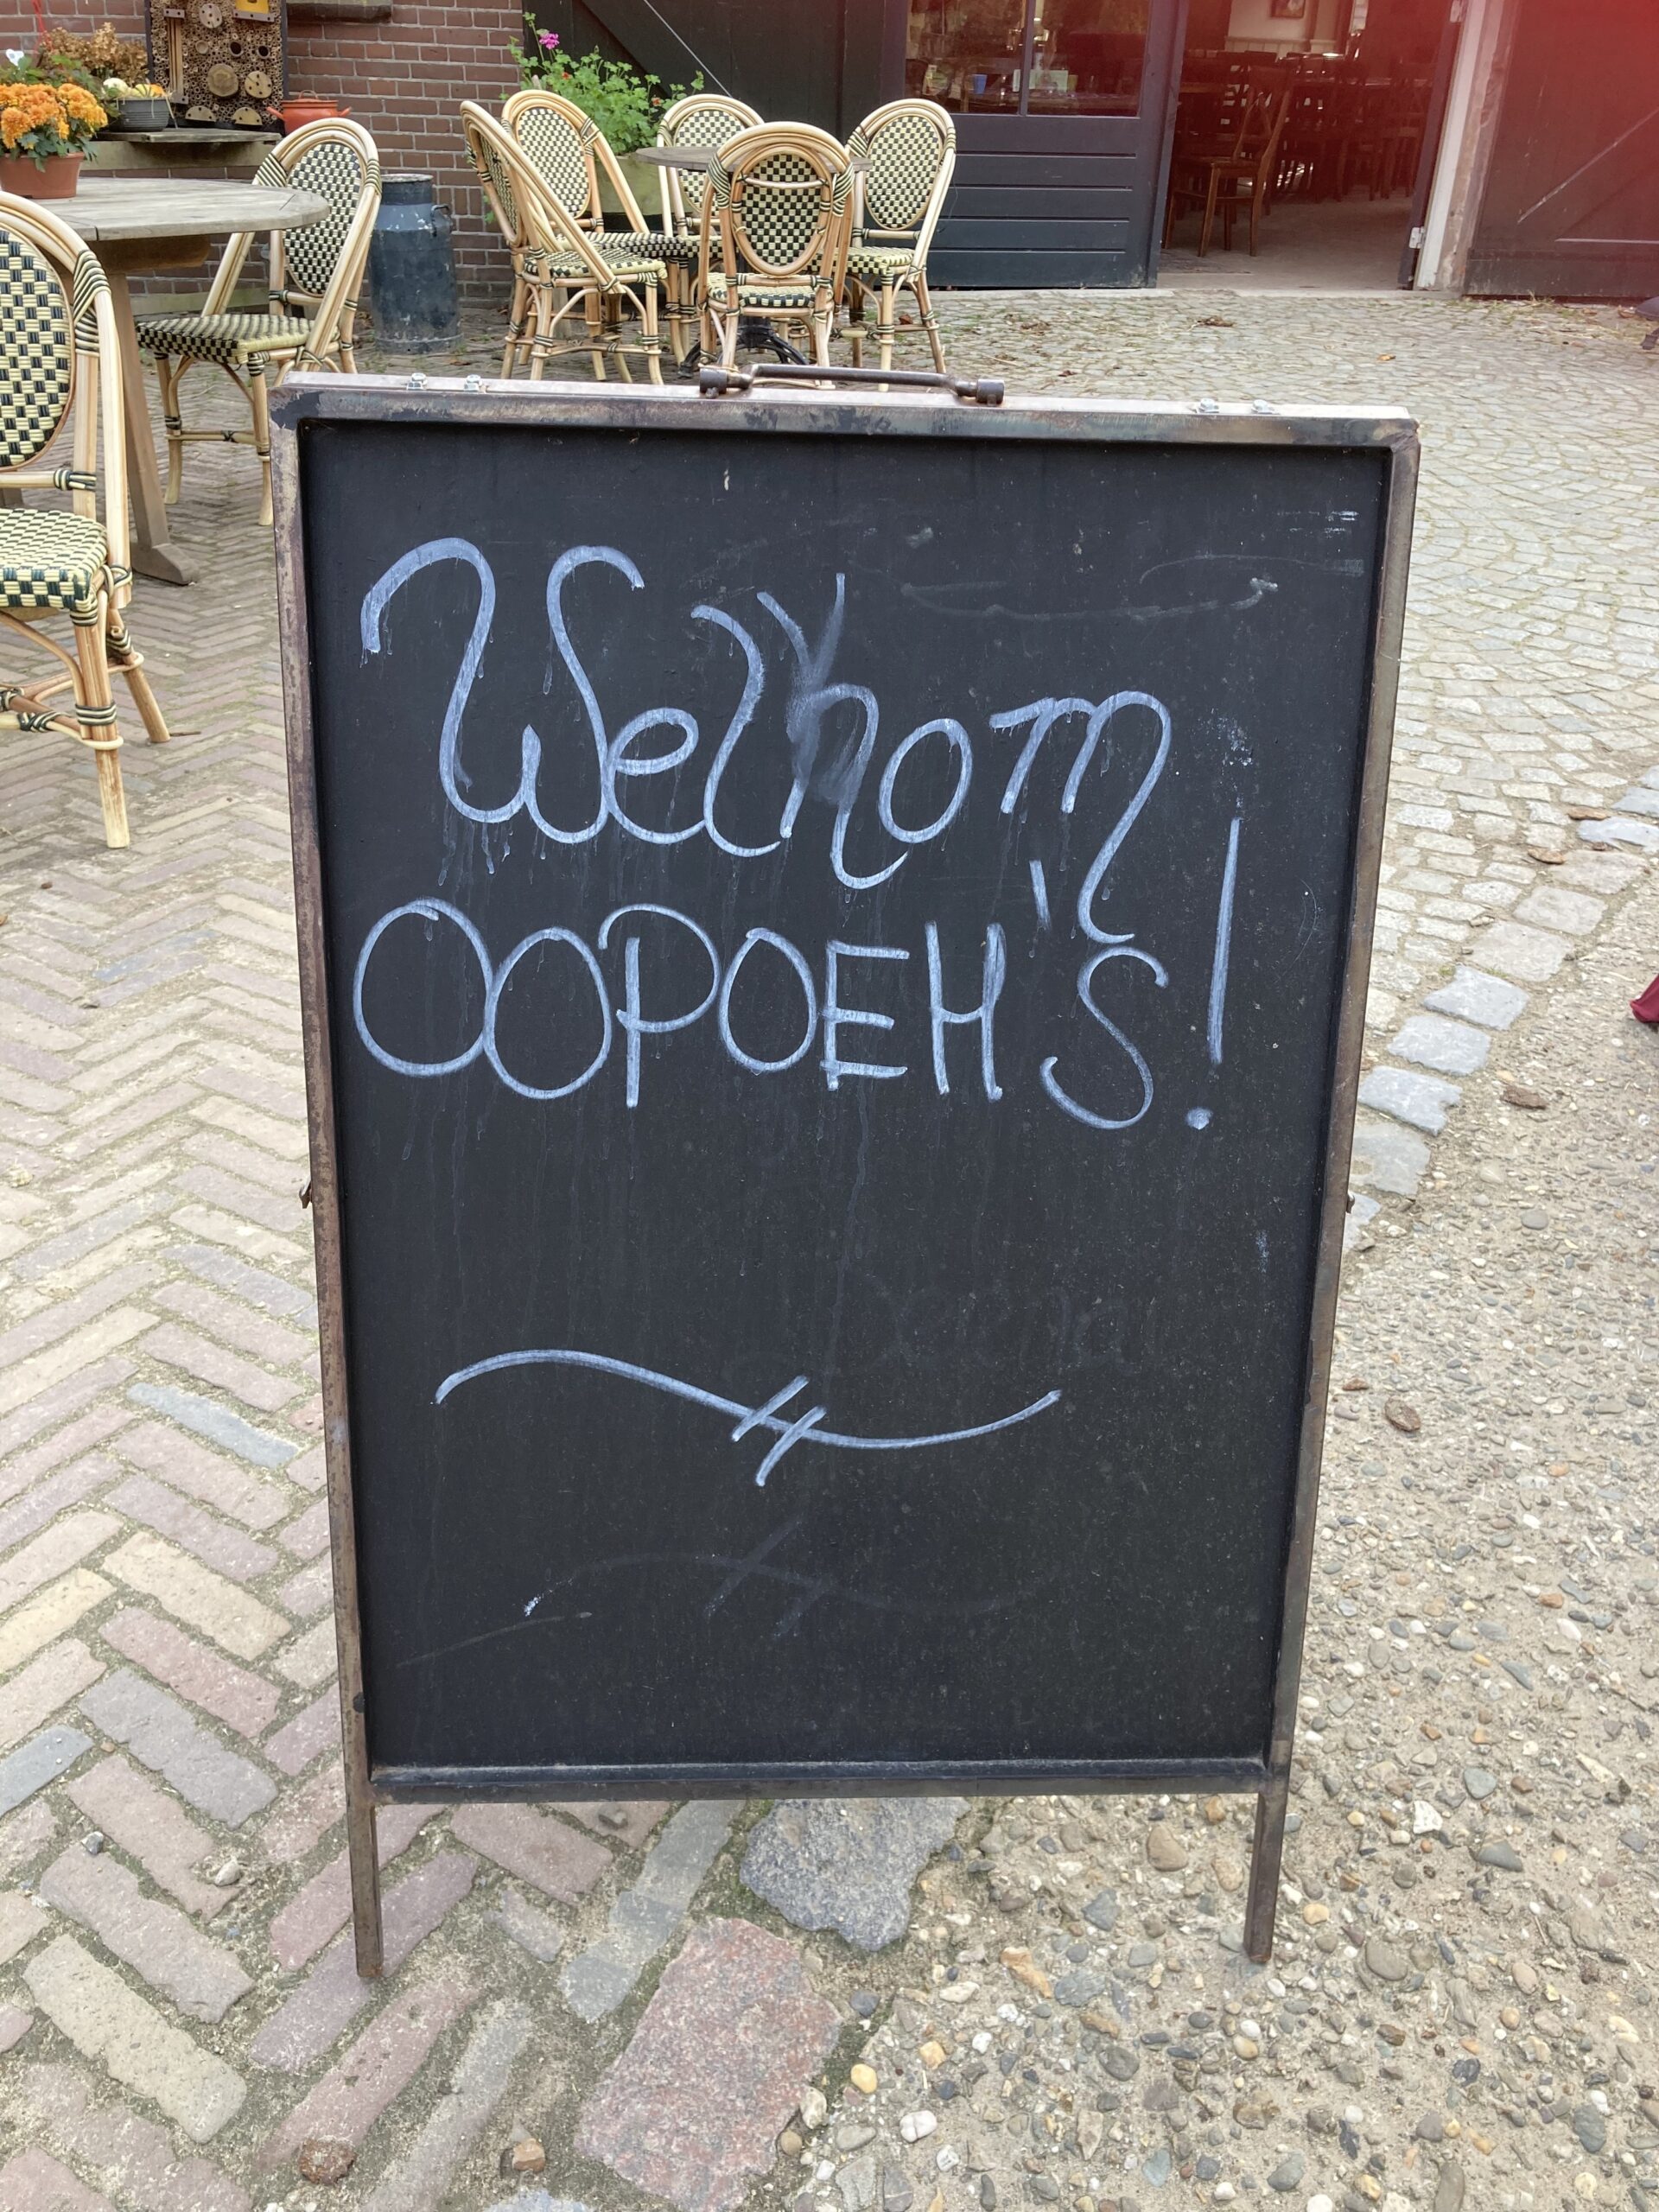 Welkom
OOPOEH'S!